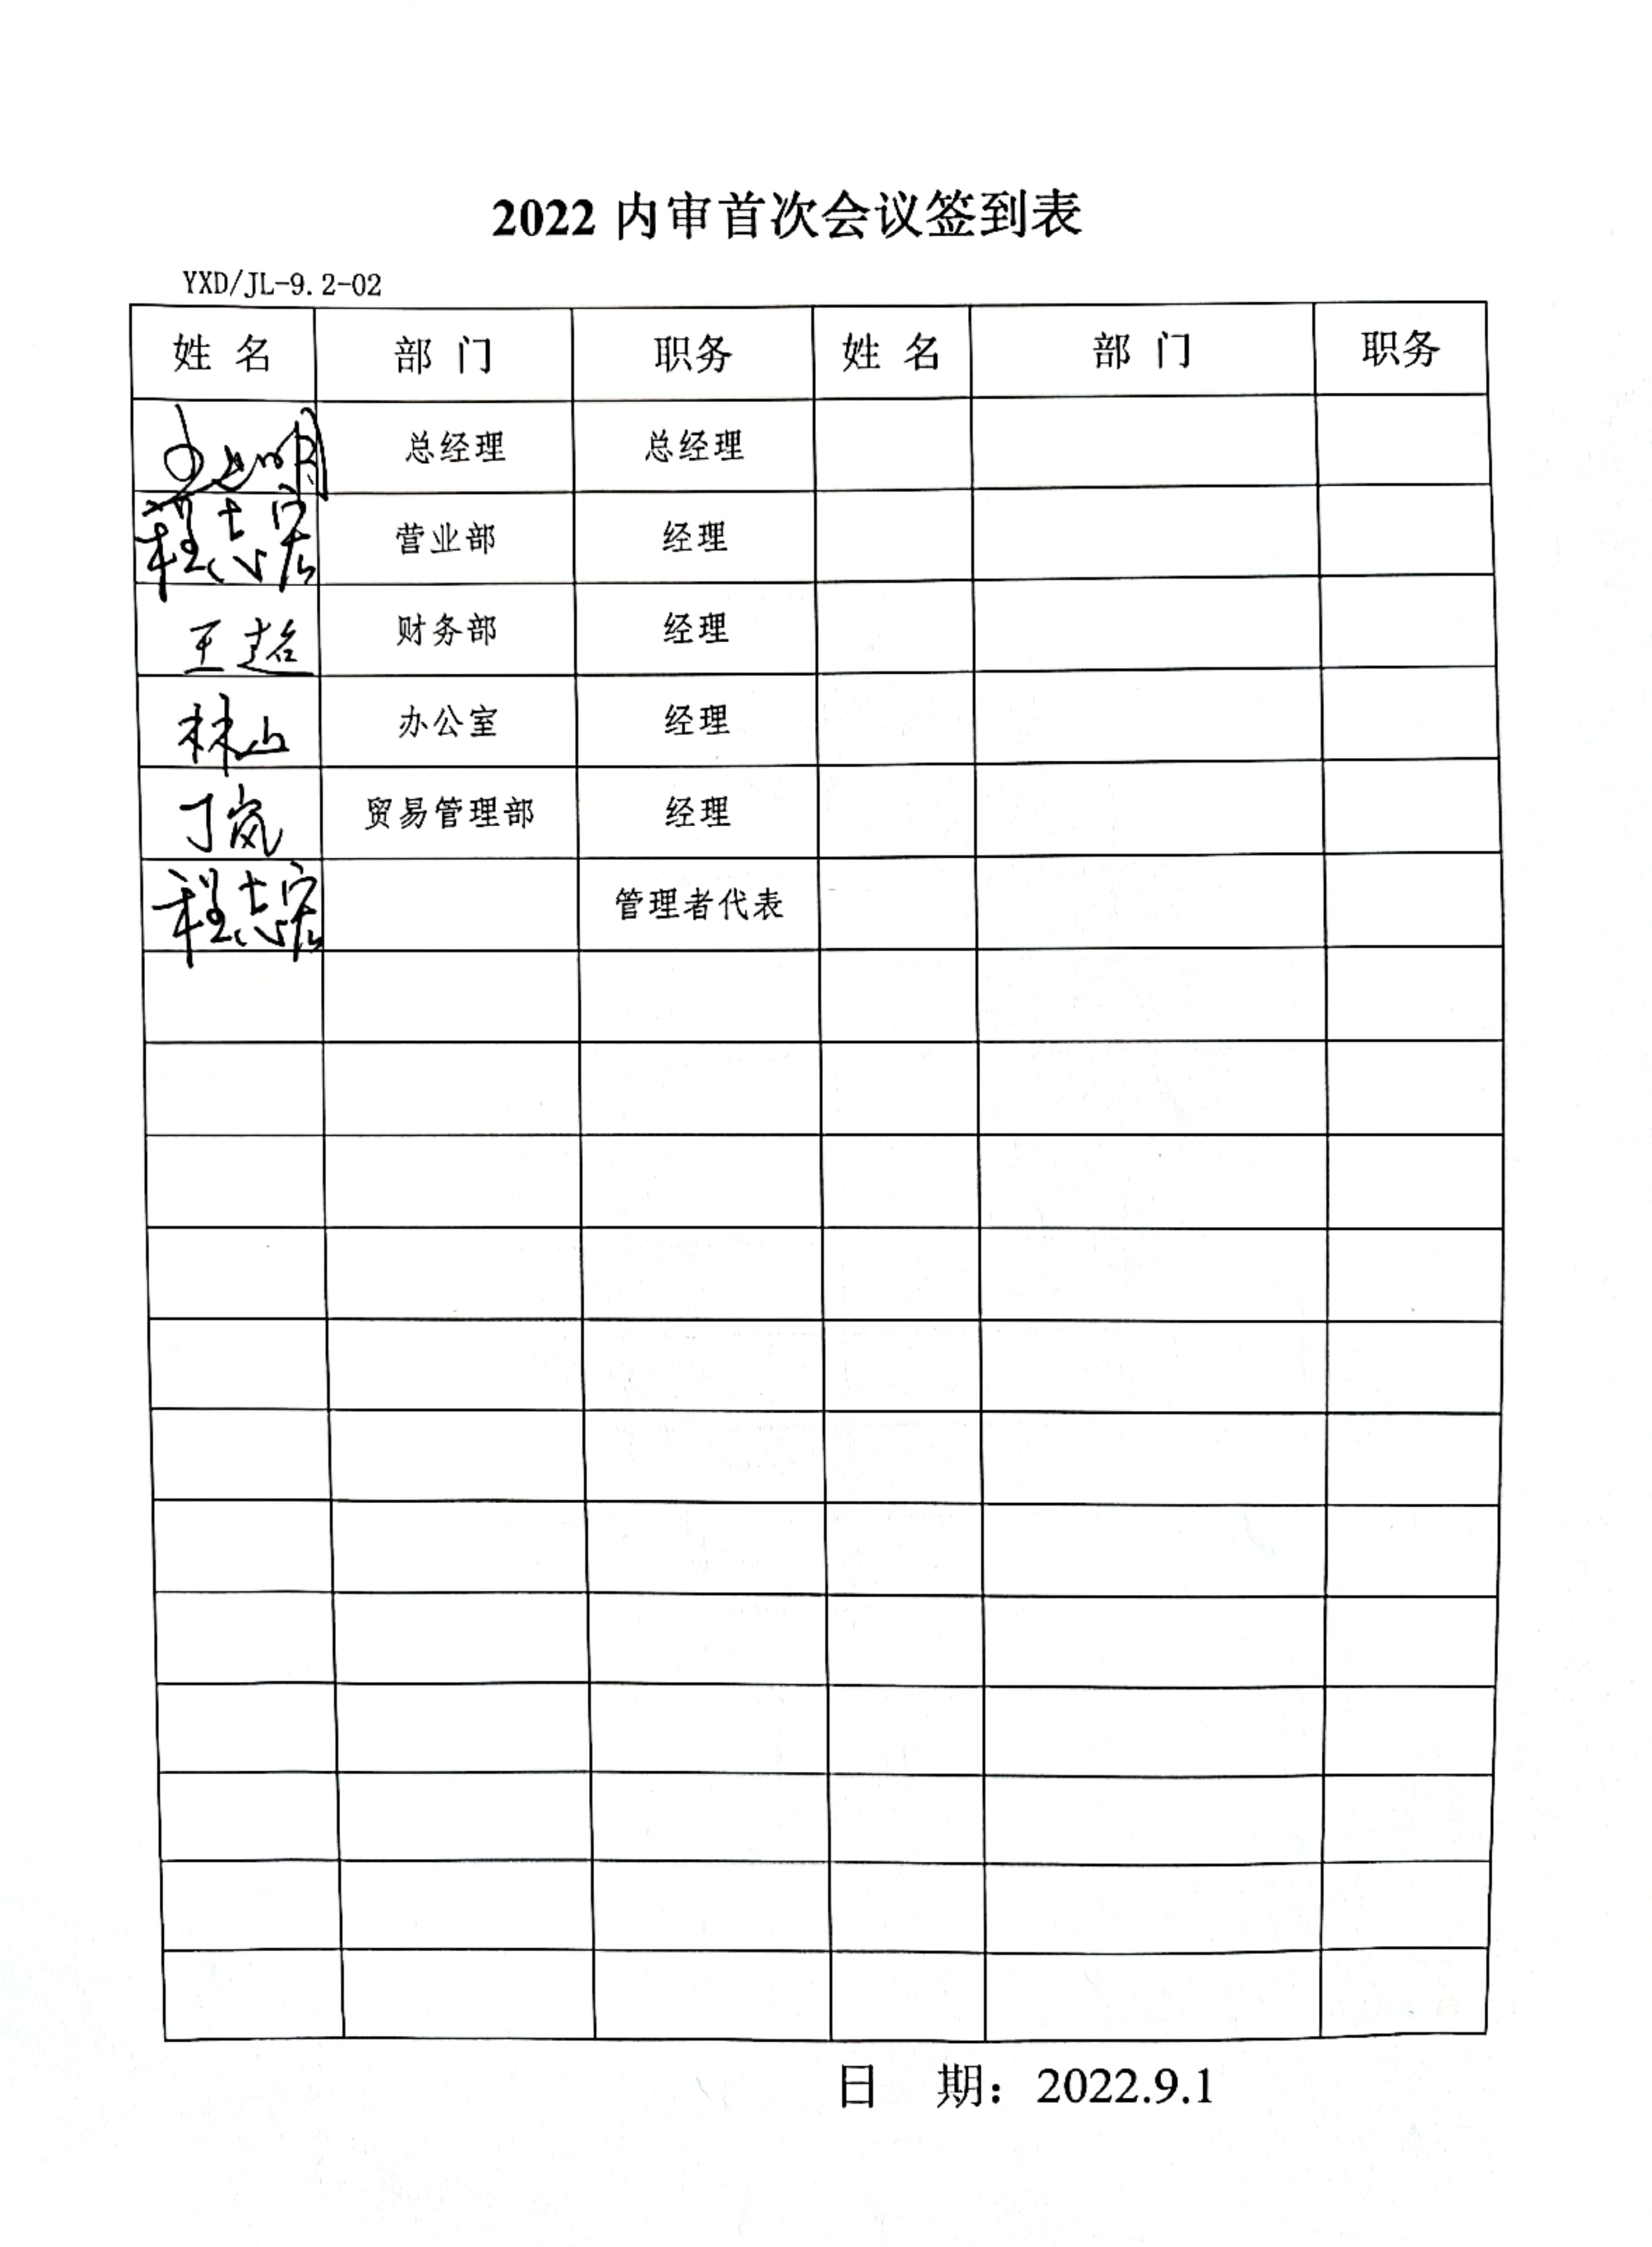 2022 内审首次会议签到表
YXD/JL-9.2-02
姓 名 部 门 职务 姓 名 部 门 职务
总经理 总经理
程志宏 营业部 经理
王超 财务部 经理
林山 办公室 经理
丁岚 贸易管理部 经理
程志宏 管理者代表
日 期：2022.9.1